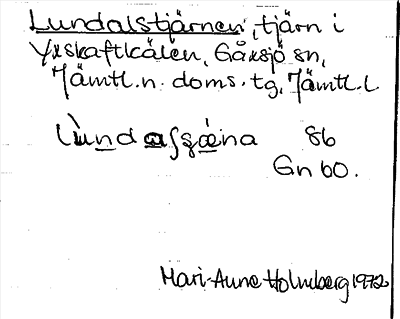 Lundalstjärnen, tjärn i
Yxskaftkälen, Gåxsjö sn,
Jämtl. n. doms. tg, Jämtl. l.
86
Gn 60.
Mari-Anne Holmberg 1972